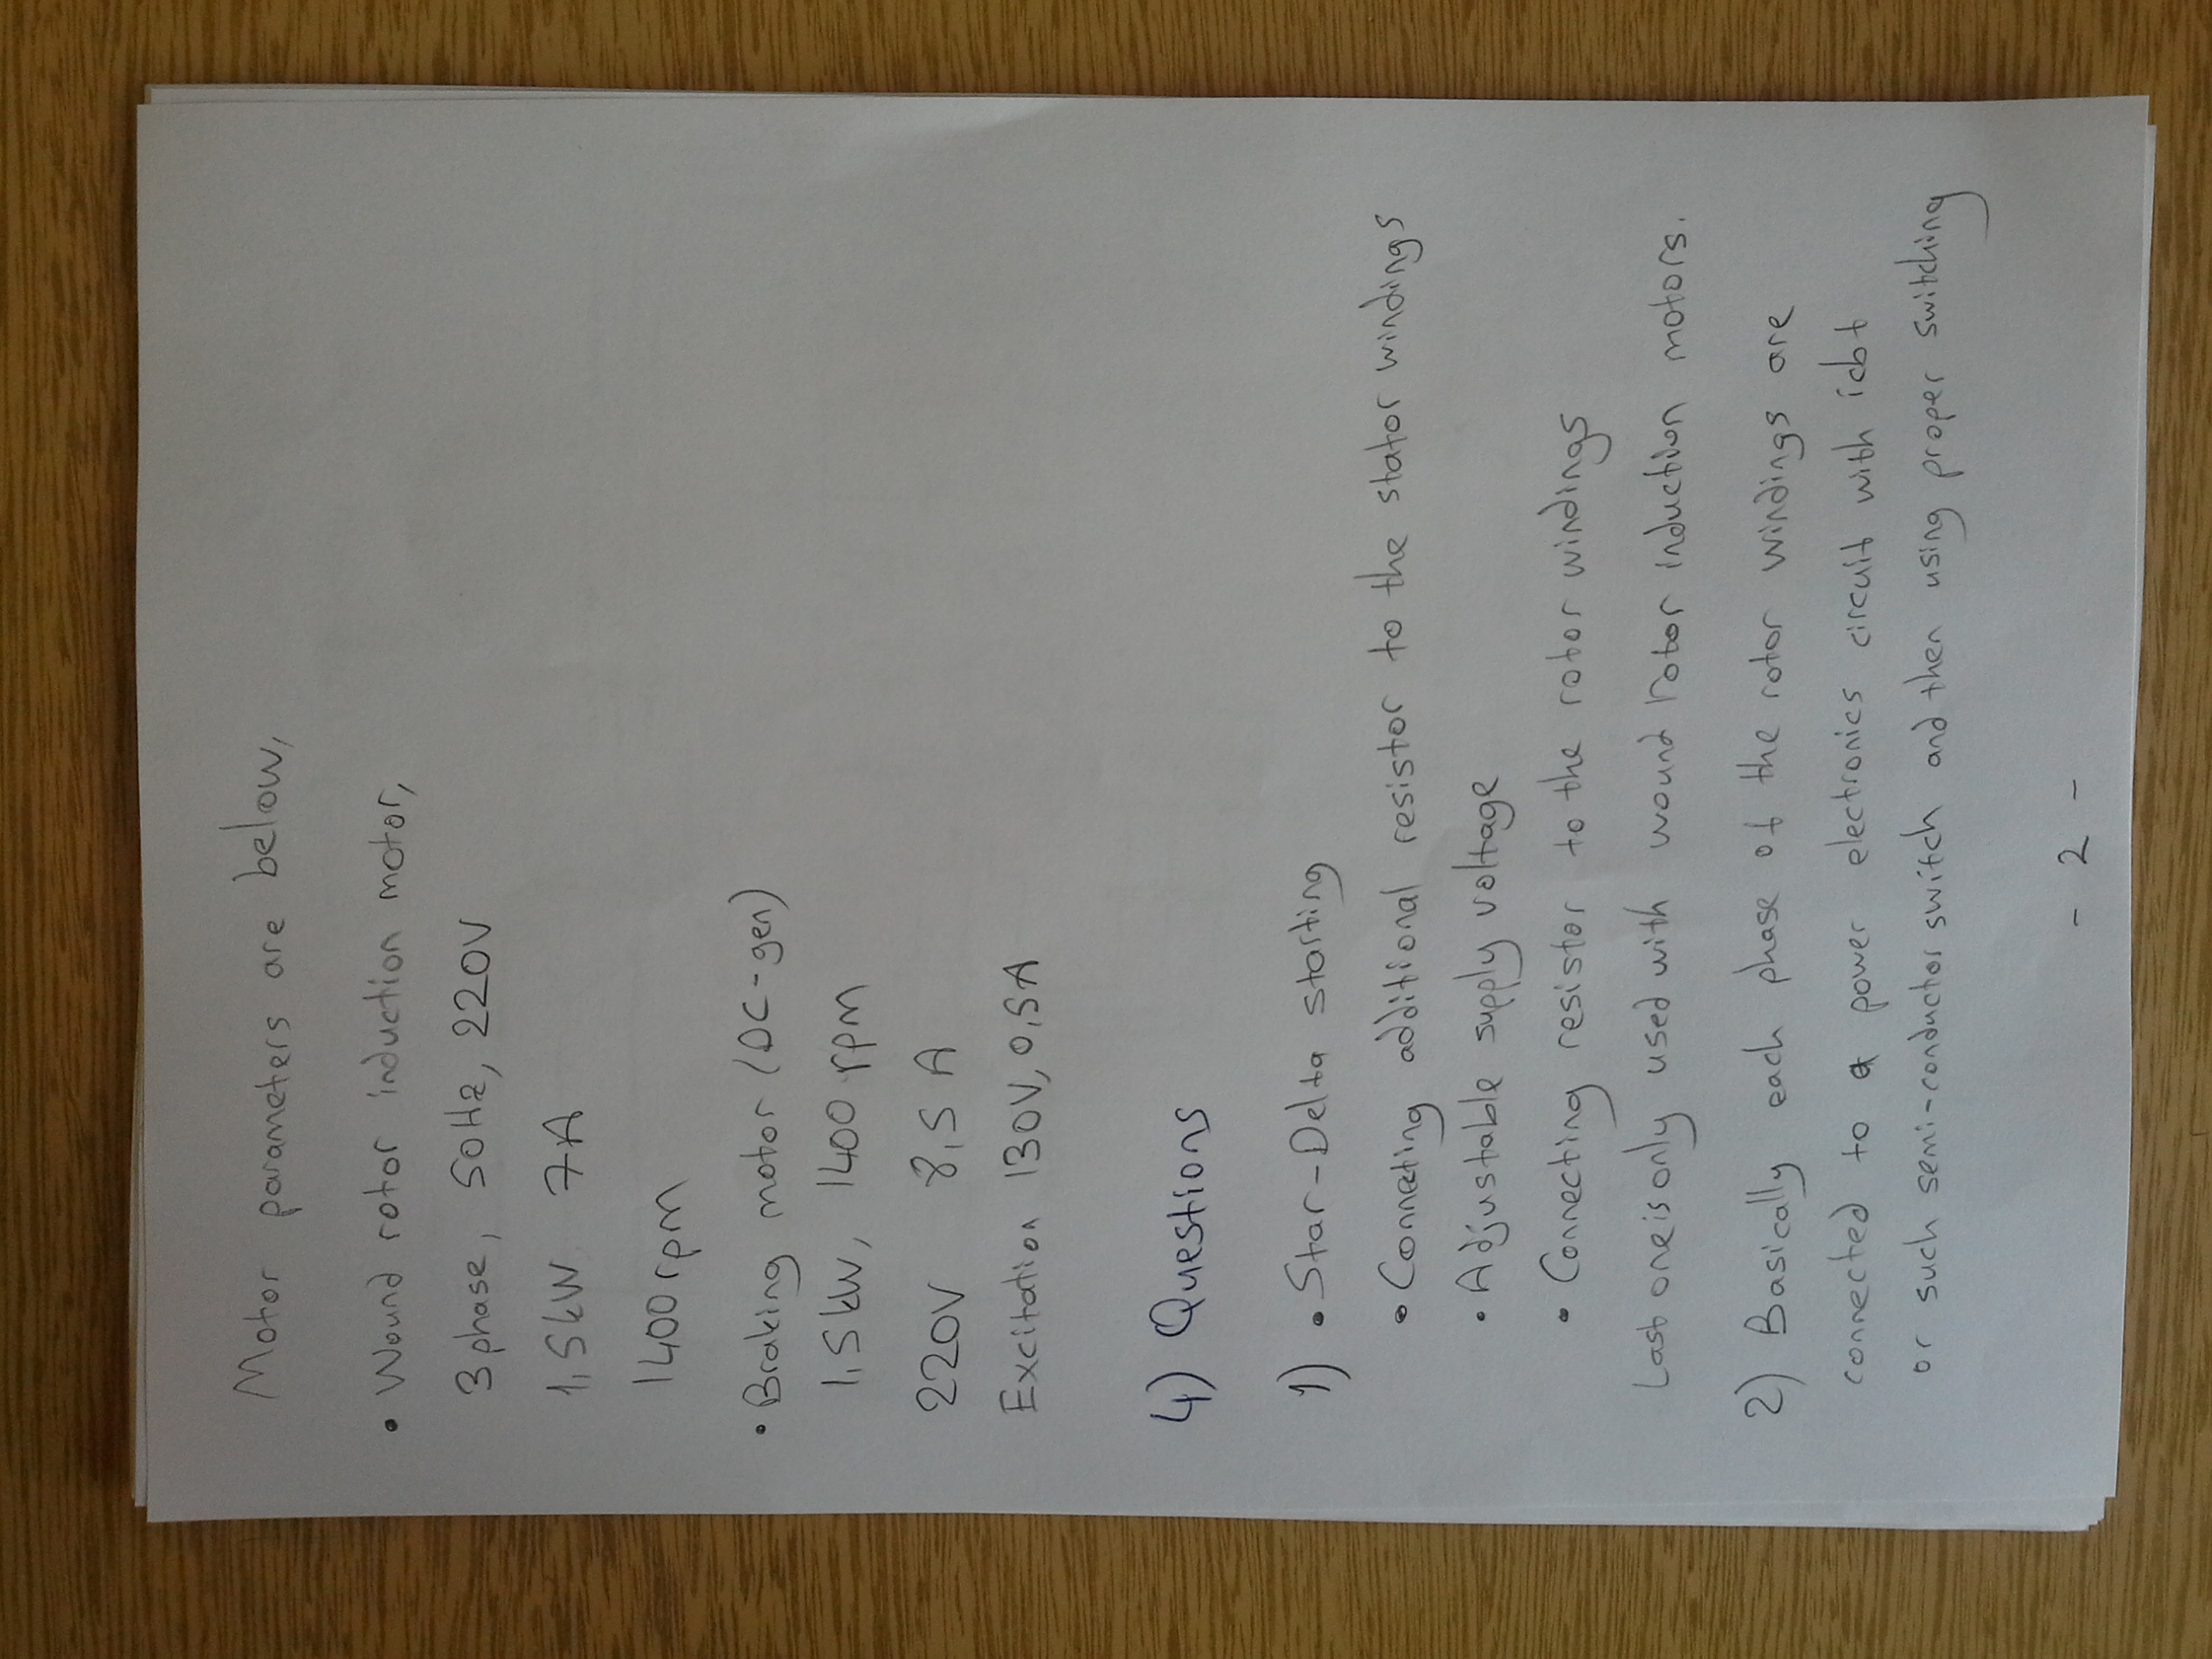 Motor parameters are below,
• Wound rotor induction motor,
3 phase, 50Hz, 220V
1,5kW 7A
1400 rpm
• Braking motor (DC-gen)
1,5kW, 1400 rpm
220V 8,5 A
Excitation 130V, 0,5A
4) Questions
1) • Star-Delta starting
• Conneting additional resistor to the stator windings
• Adjustable supply voltage
• Connecting resistor to the rotor windings
Last one is only used with wound rotor induction motors.
2) Basically each phase of the rotor windings are
connected to a power electronics circuit with icbt
or such semi-conductor switch and then using proper switching
- 2 -